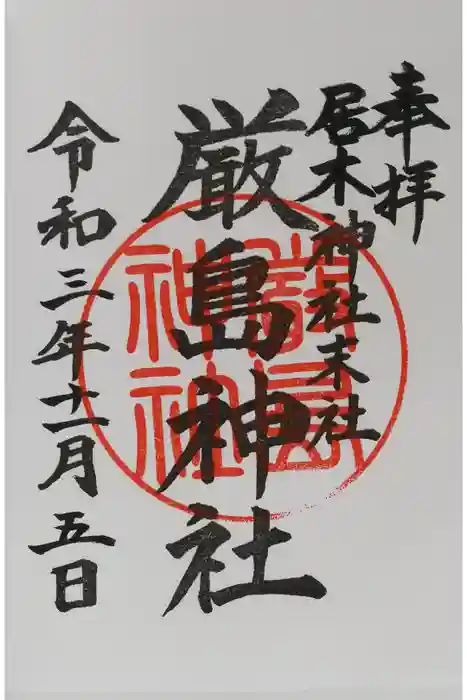 奉拝
居木神社末社
厳島神社
令和三年十一月五日
厳島神社